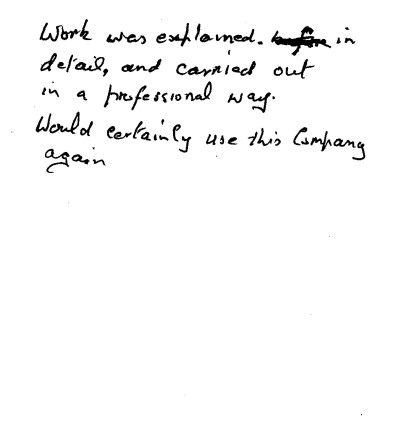 Work was explained. in
detail, and carried out
in a professional way.
Would certainly use this Company
again